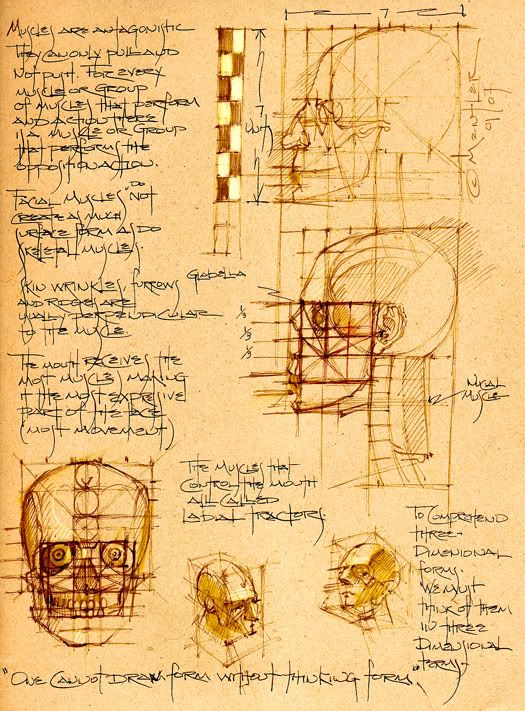 Muscles are antagonistic
They can only pull and
not push. For every
muscle or group
of muscles that perform
and action there
is a muscle or group
that performs the
opposition action.
Facial muscles do not
create as much
surface form as do
skeletal muscles.
Skin wrinkles, furrows
and ridges are
usually perpendicular
to the muscle.
The mouth receives the
most muscles making
it the most expressive
part of the face
(most movement)
7
7
units
© M Kentler
01 07
Glabella
1/3
1/3
1/3
Nucal
Muscle
The muscles that
control the mouth
all called
labial tractors.
To comprehend
three-
dimensional
forms.
We must
think of them
in three
dimensional
terms.
"One cannot draw form without thinking form"